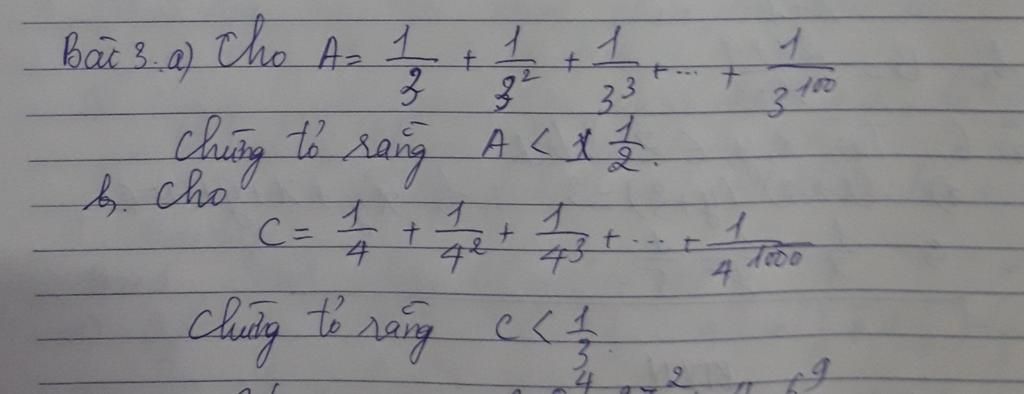 Bài 3. a) Cho A = 1/3 + 1/3² + 1/3³ + ... + 1/3¹⁰⁰
Chứng tỏ rằng A < 1/2.
b. Cho
C = 1/4 + 1/4² + 1/4³ + ... + 1/4¹⁰⁰⁰
Chứng tỏ rằng C < 1/3